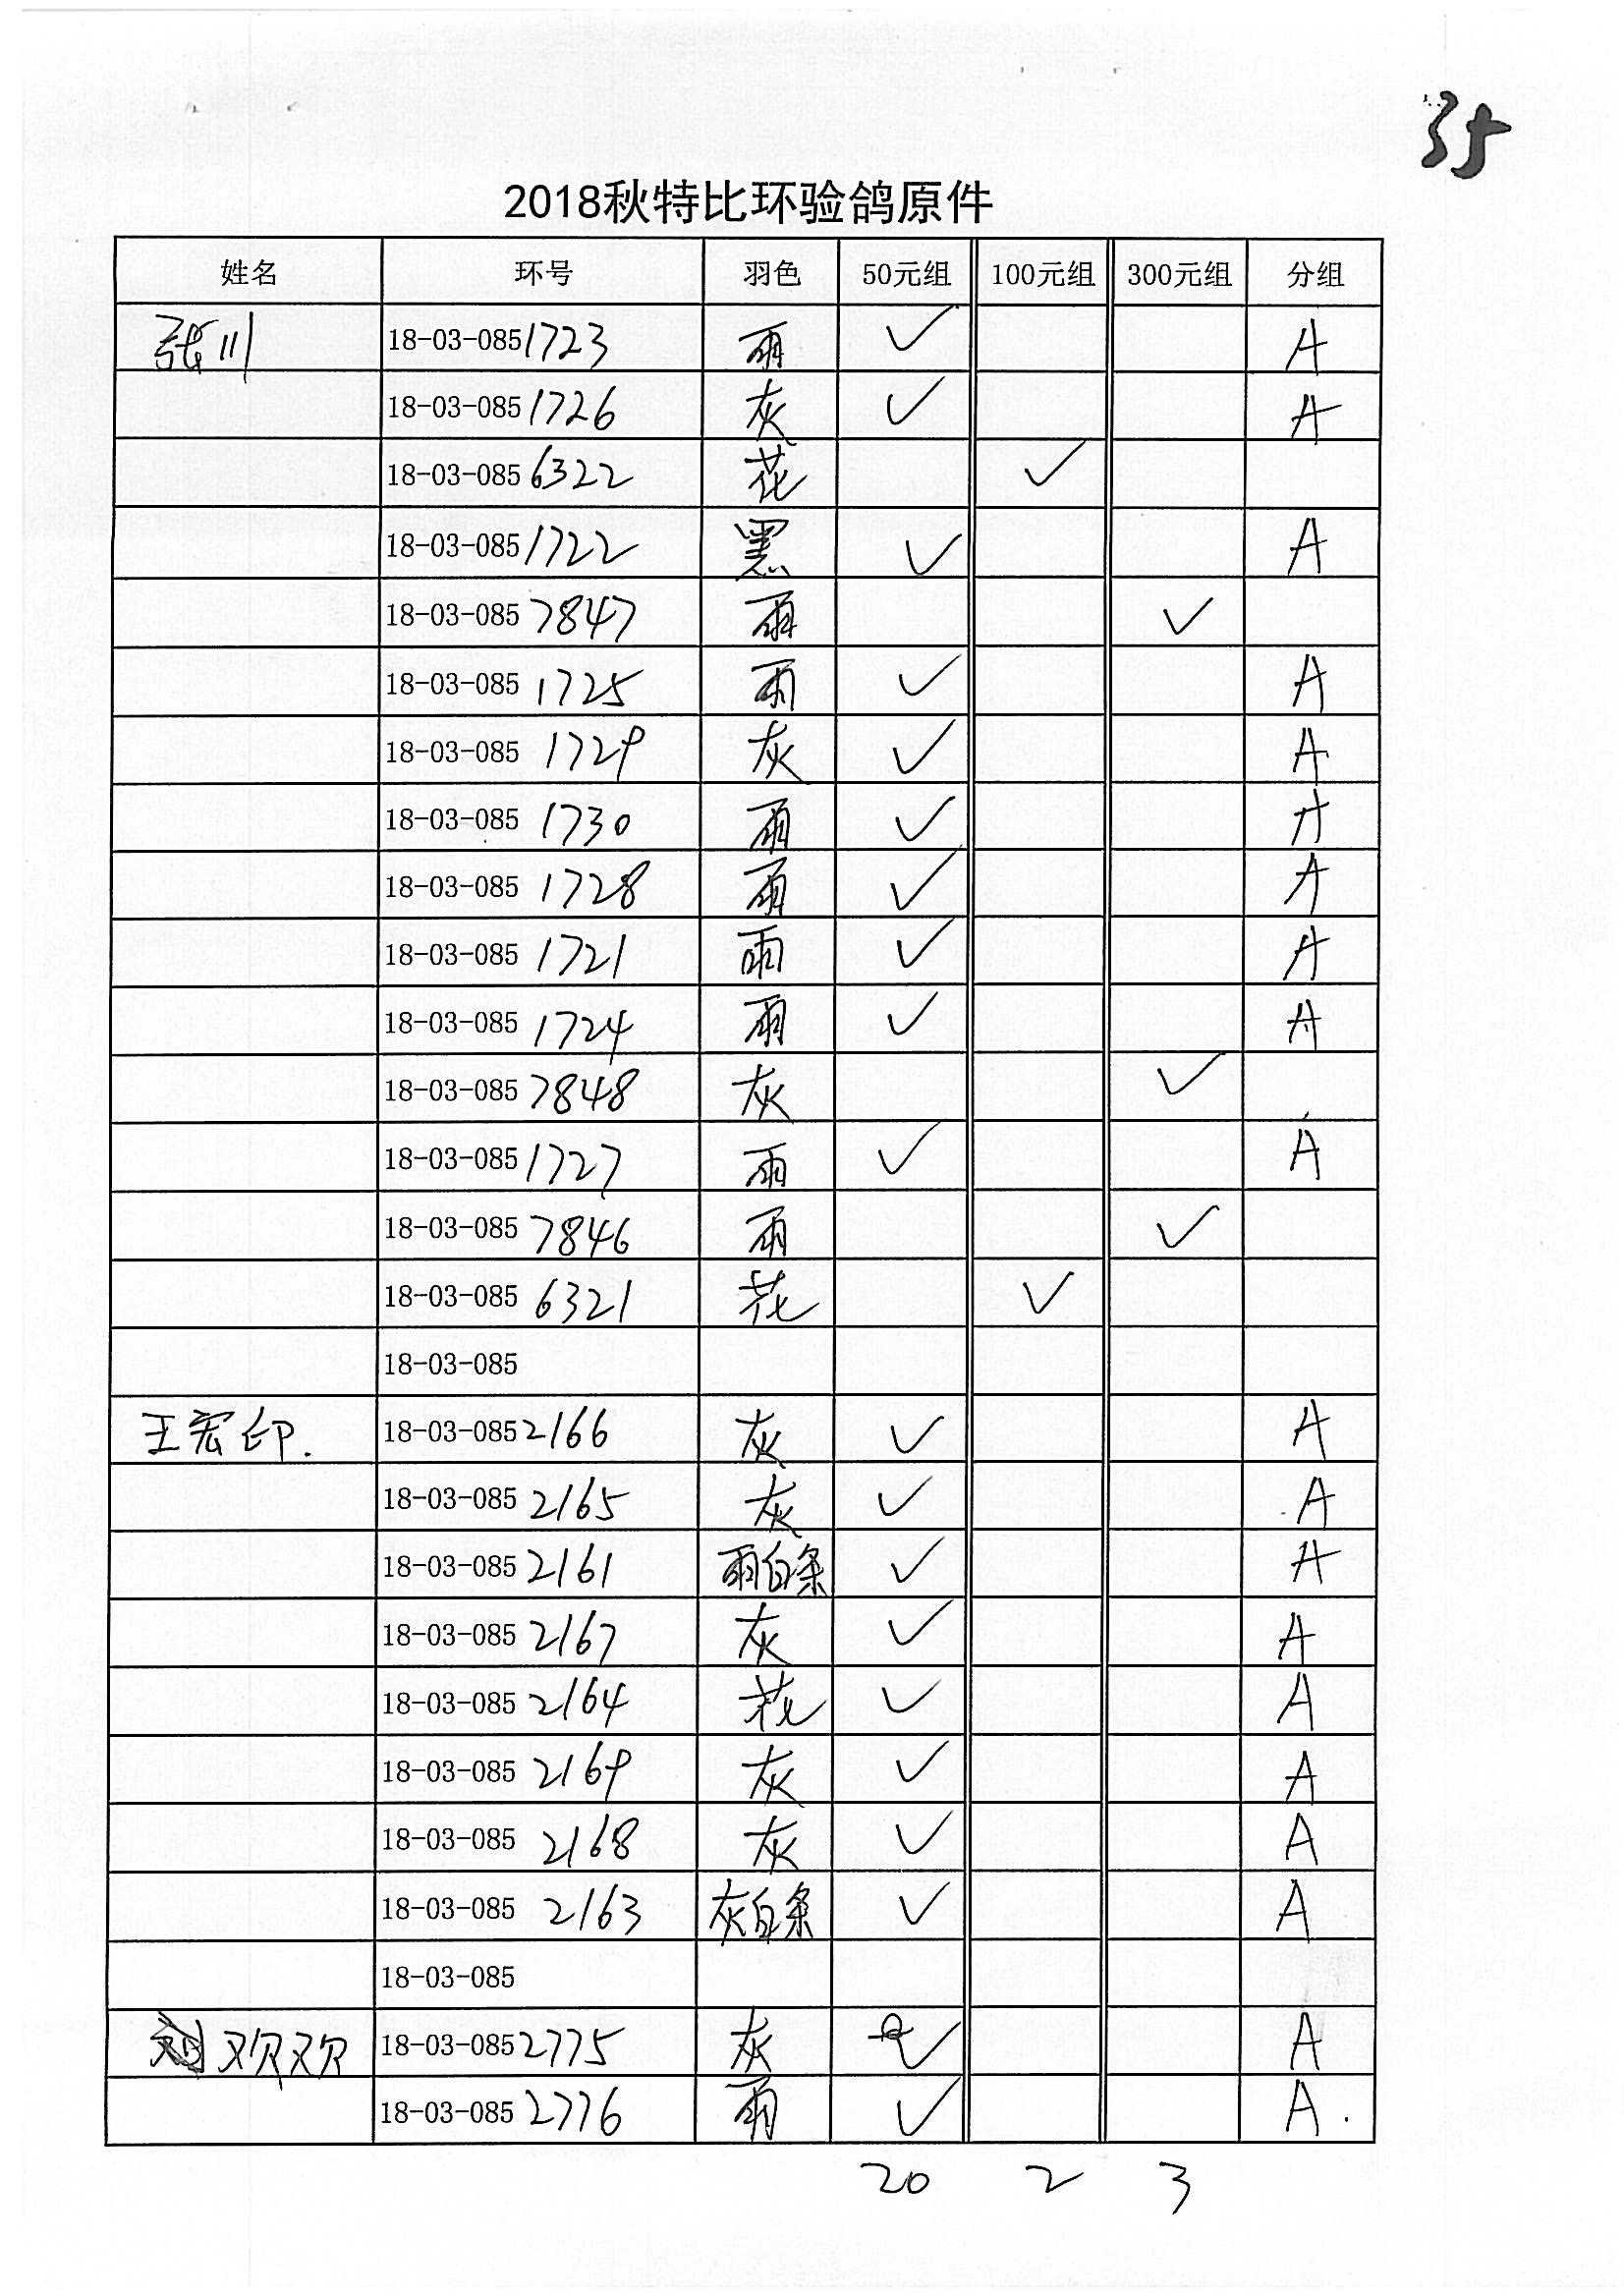 35
2018秋特比环验鸽原件
姓名 环号 羽色 50元组 100元组 300元组 分组
张川 18-03-0851723 雨 ✓ A
18-03-0851726 灰 ✓ A
18-03-0856322 花 ✓
18-03-0851722 黑 ✓ A
18-03-0857847 雨 ✓
18-03-0851725 雨 ✓ A
18-03-0851729 灰 ✓ A
18-03-0851730 雨 ✓ A
18-03-0851728 雨 ✓ A
18-03-0851721 雨 ✓ A
18-03-0851724 雨 ✓ A
18-03-0857848 灰 ✓
18-03-0851727 雨 ✓ A
18-03-0857846 雨 ✓
18-03-0856321 花 ✓
18-03-085
王宏印. 18-03-0852166 灰 ✓ A
18-03-0852165 灰 ✓ A
18-03-0852161 雨白条 ✓ A
18-03-0852167 灰 ✓ A
18-03-0852164 花 ✓ A
18-03-0852169 灰 ✓ A
18-03-0852168 灰 ✓ A
18-03-0852163 灰白条 ✓ A
18-03-085
刘欢欢 18-03-0852775 灰 ✓ A
18-03-0852776 雨 ✓ A.
20 2 3